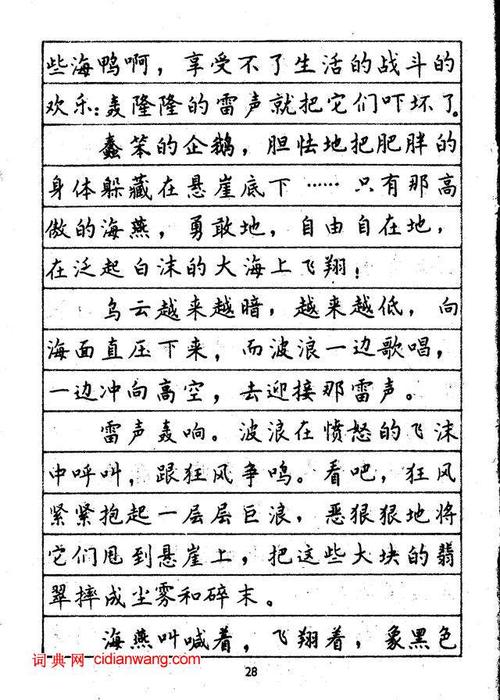 些海鸭啊，享受不了生活的战斗的
欢乐：轰隆隆的雷声就把它们吓坏了。
蠢笨的企鹅，胆怯地把肥胖的
身体躲藏在悬崖底下……只有那高
傲的海燕，勇敢地，自由自在地，
在泛起白沫的大海上飞翔！
乌云越来越暗，越来越低，向
海面直压下来，而波浪一边歌唱，
一边冲向高空，去迎接那雷声。
雷声轰响。波浪在愤怒的飞沫
中呼叫，跟狂风争鸣。看吧，狂风
紧紧抱起一层层巨浪，恶狠狠地将
它们甩到悬崖上，把这些大块的翡
翠摔成尘雾和碎末。
海燕叫喊着，飞翔着，象黑色
词典网 cidianwang.com
28